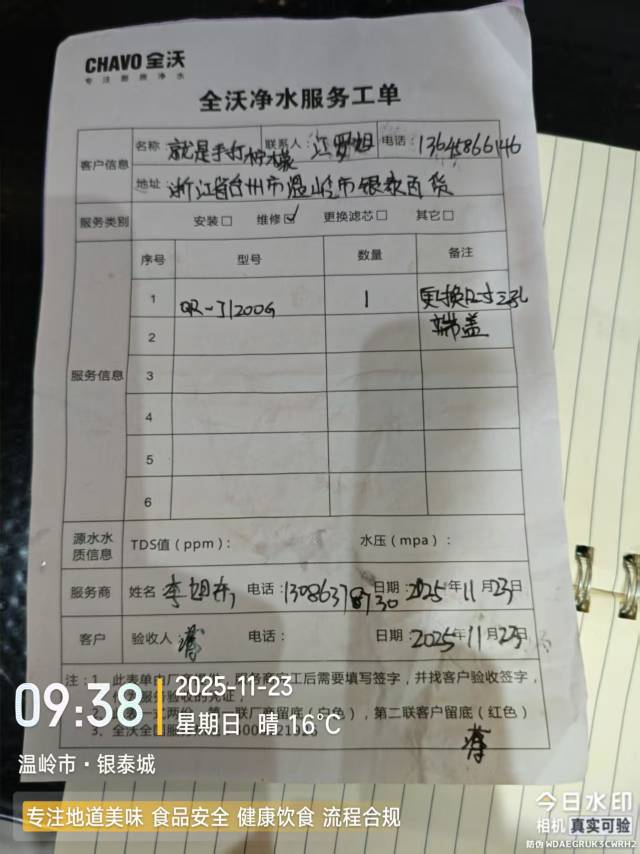 CHAVO 全沃
专注厨房净水
全沃净水服务工单
客户信息 名称: 就是手打柠檬 联系人: 江梦旭 电话: 13645866146
地址: 浙江省台州市温岭市银泰百货
服务类别 安装□ 维修☑ 更换滤芯□ 其它□
服务信息 序号 型号 数量 备注
1 QR-J1200G 1 更换尺寸三孔
端盖
2
3
4
5
6
源水水质信息 TDS值(ppm): 水压(mpa):
服务商 姓名 电话: 13086378730 日期: 2025年11月23日
客户 验收人 电话: 日期: 2025年11月23日
注: 1、此表单由厂 工后需要填写签字,并找客户验收签字,
服务验收的凭证;
一式两份,第一联厂商留底(白色),第二联客户留底(红色)
3、全沃全国服
09:38 2025-11-23
星期日 晴 16℃
温岭市·银泰城
专注地道美味 食品安全 健康饮食 流程合规
今日水印
相机 真实可验
防伪 WDAEGRUK3CWRH2